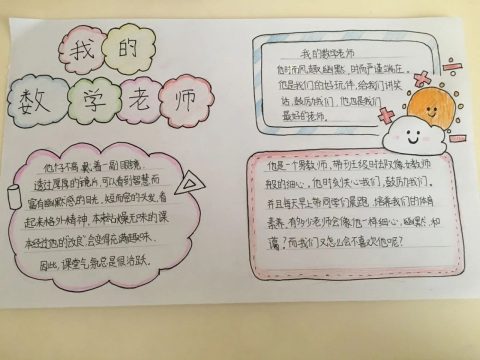 我的
数学老师
我的数学老师
他时而风趣幽默,时而严谨端庄。
他是我们的好玩伴,给我们讲笑
话,鼓励我们,他也是我们
最好的老师。
他个子不高,戴着一副眼镜,
透过厚厚的镜片,可以看到智慧而
富有幽默感的目光,短而密的头发,看
起来格外精神,本来枯燥无味的课
本经过他的"改良",会变得充满趣味,
因此,课堂气氛总是很活跃。
他是一个男教师,带班主任时却像女教师
般的细心,他时刻关心我们,鼓励我们。
并且每天早上带同学们晨跑,培养我们的体育
素养。有多少老师会像他一样细心,幽默,和
蔼?而我们又怎么会不喜欢他呢?